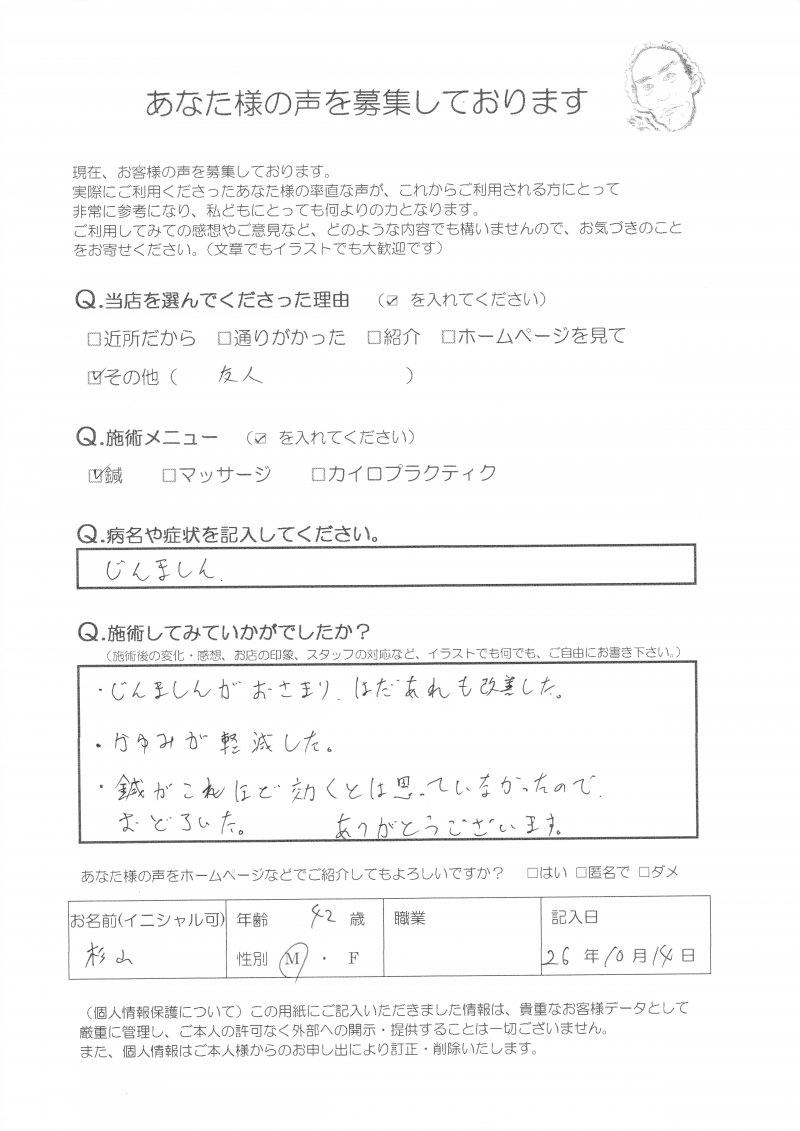 あなた様の声を募集しております
現在、お客様の声を募集しております。
実際にご利用くださったあなた様の率直な声が、これからご利用される方にとって
非常に参考になり、私どもにとっても何よりの力となります。
ご利用してみての感想やご意見など、どのような内容でも構いませんので、お気づきのこと
をお寄せください。（文章でもイラストでも大歓迎です）
Q.当店を選んでくださった理由　（☑ を入れてください）
□近所だから　□通りがかった　□紹介　□ホームページを見て
☑その他（　友人　）
Q.施術メニュー　（☑ を入れてください）
☑鍼　□マッサージ　□カイロプラクティク
Q.病名や症状を記入してください。
じんましん.
Q.施術してみていかがでしたか？
（施術後の変化・感想、お店の印象、スタッフの対応など、イラストでも何でも、ご自由にお書き下さい。）
・じんましんがおさまり、はだあれも改善した。
・かゆみが軽減した。
・鍼がこれほど効くとは思っていなかったので、
おどろいた。　ありがとうございます。
あなた様の声をホームページなどでご紹介してもよろしいですか？　□はい □匿名で □ダメ
お名前(イニシャル可)　年齢　42 歳　職業　記入日
杉山　性別　M ・ F　26 年 10 月 14 日
（個人情報保護について）この用紙にご記入いただきました情報は、貴重なお客様データとして
厳重に管理し、ご本人の許可なく外部への開示・提供することは一切ございません。
また、個人情報はご本人様からのお申し出により訂正・削除いたします。